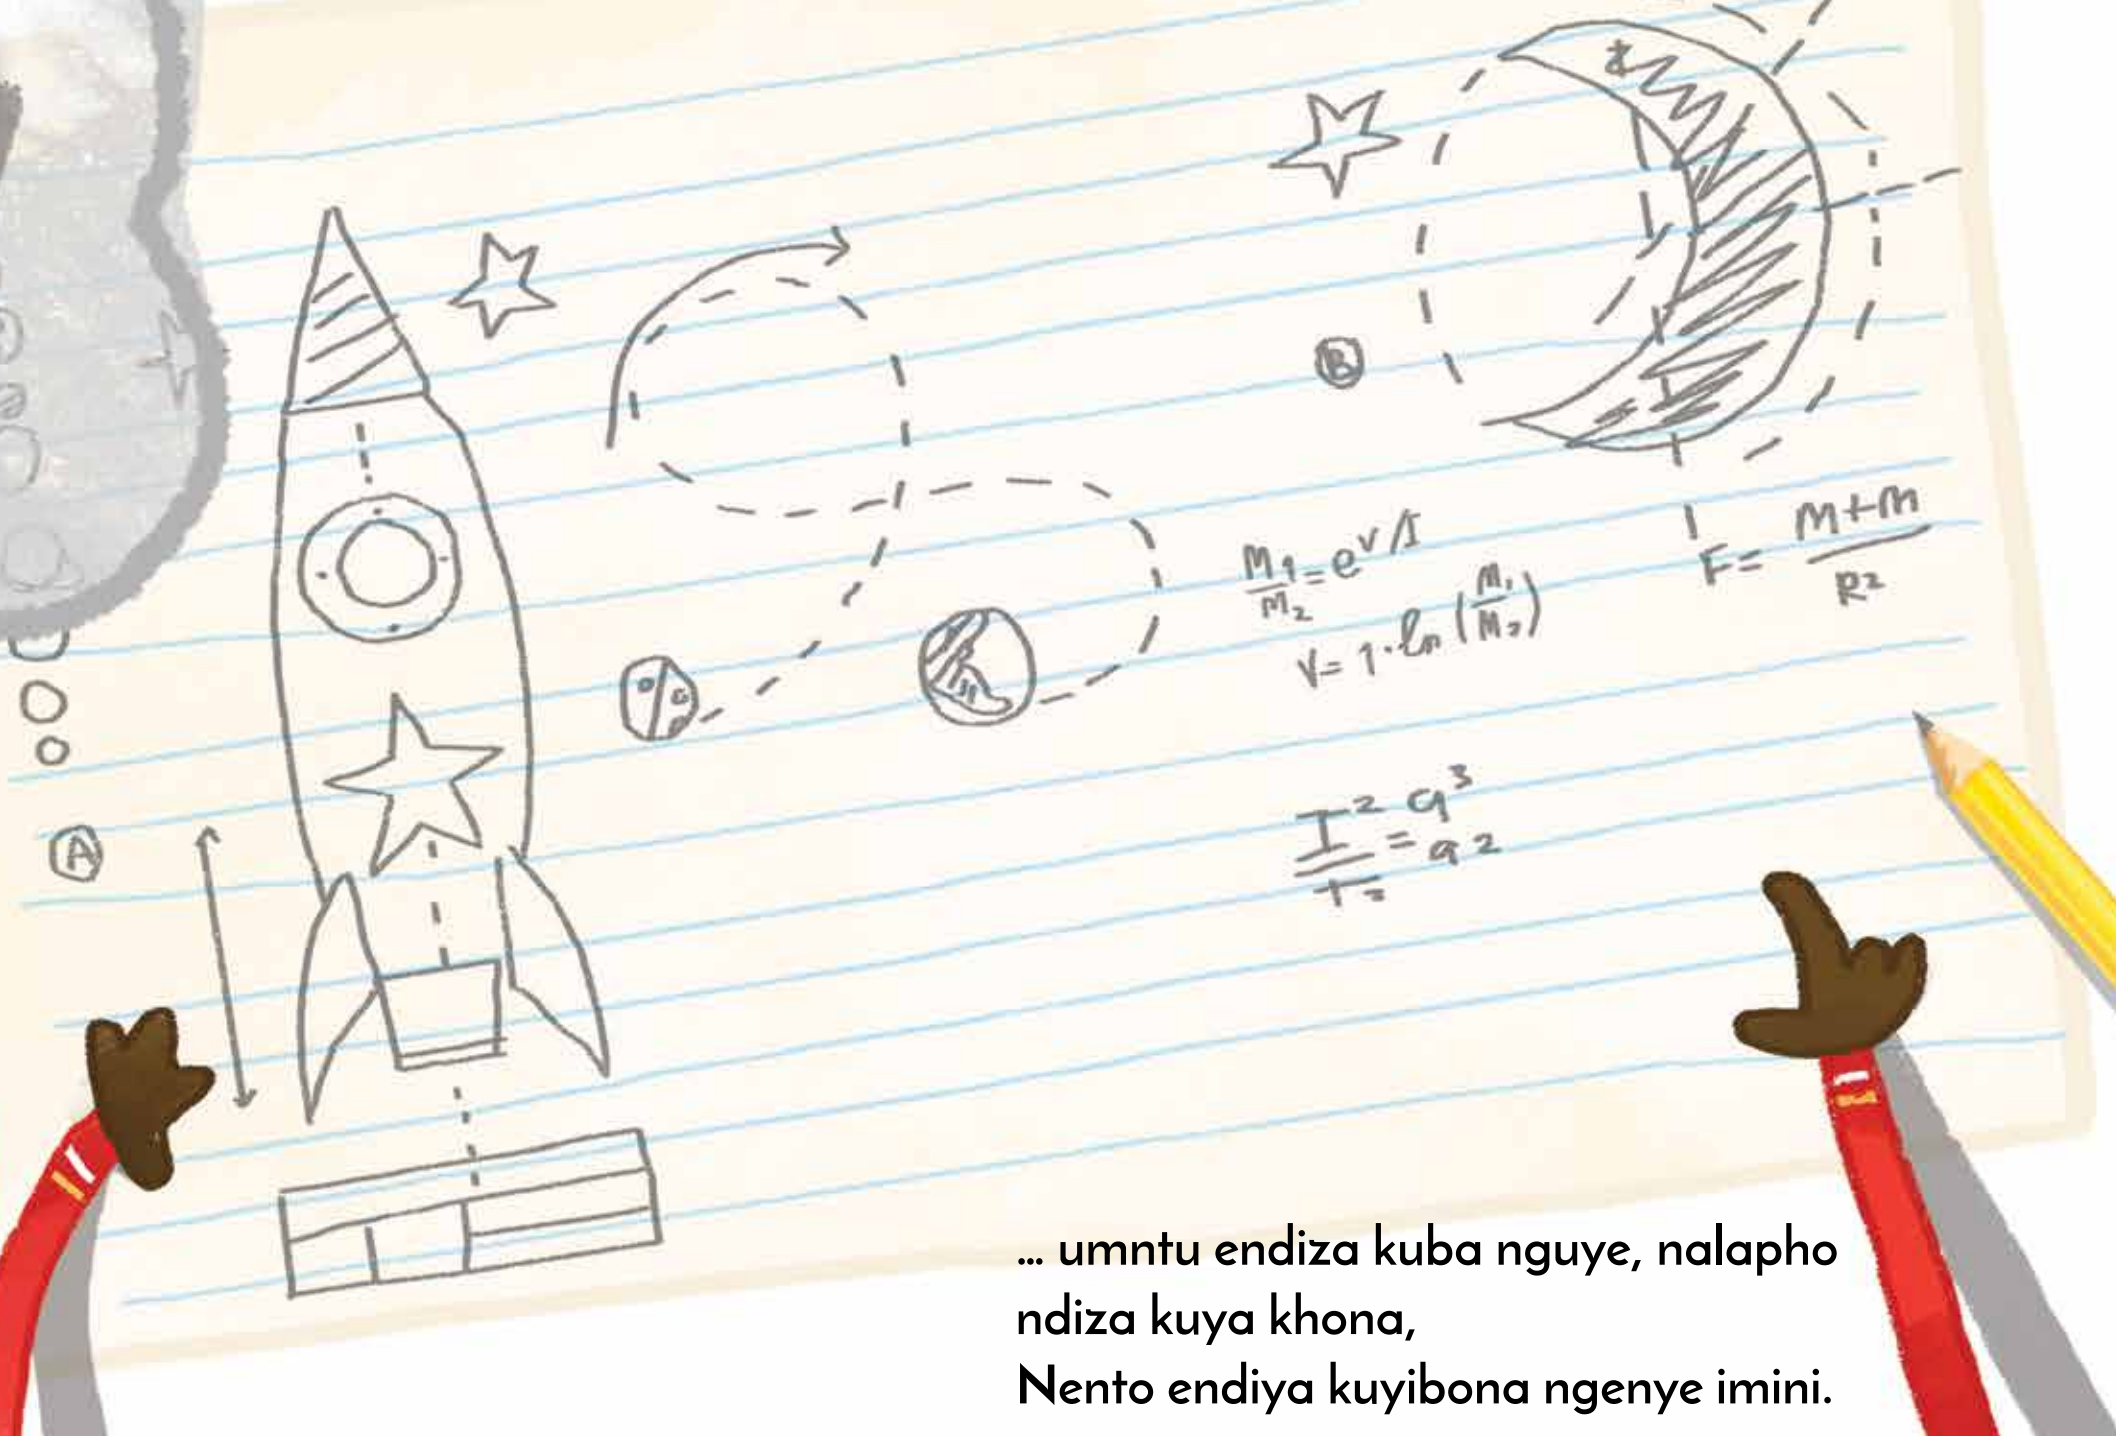 B
M1/M2 = e^V/I
V = 1 · ln (M1/M2)
F = M+M/R2
A
... umntu endiza kuba nguye, nalapho
ndiza kuya khona,
Nento endiya kuyibona ngenye imini.